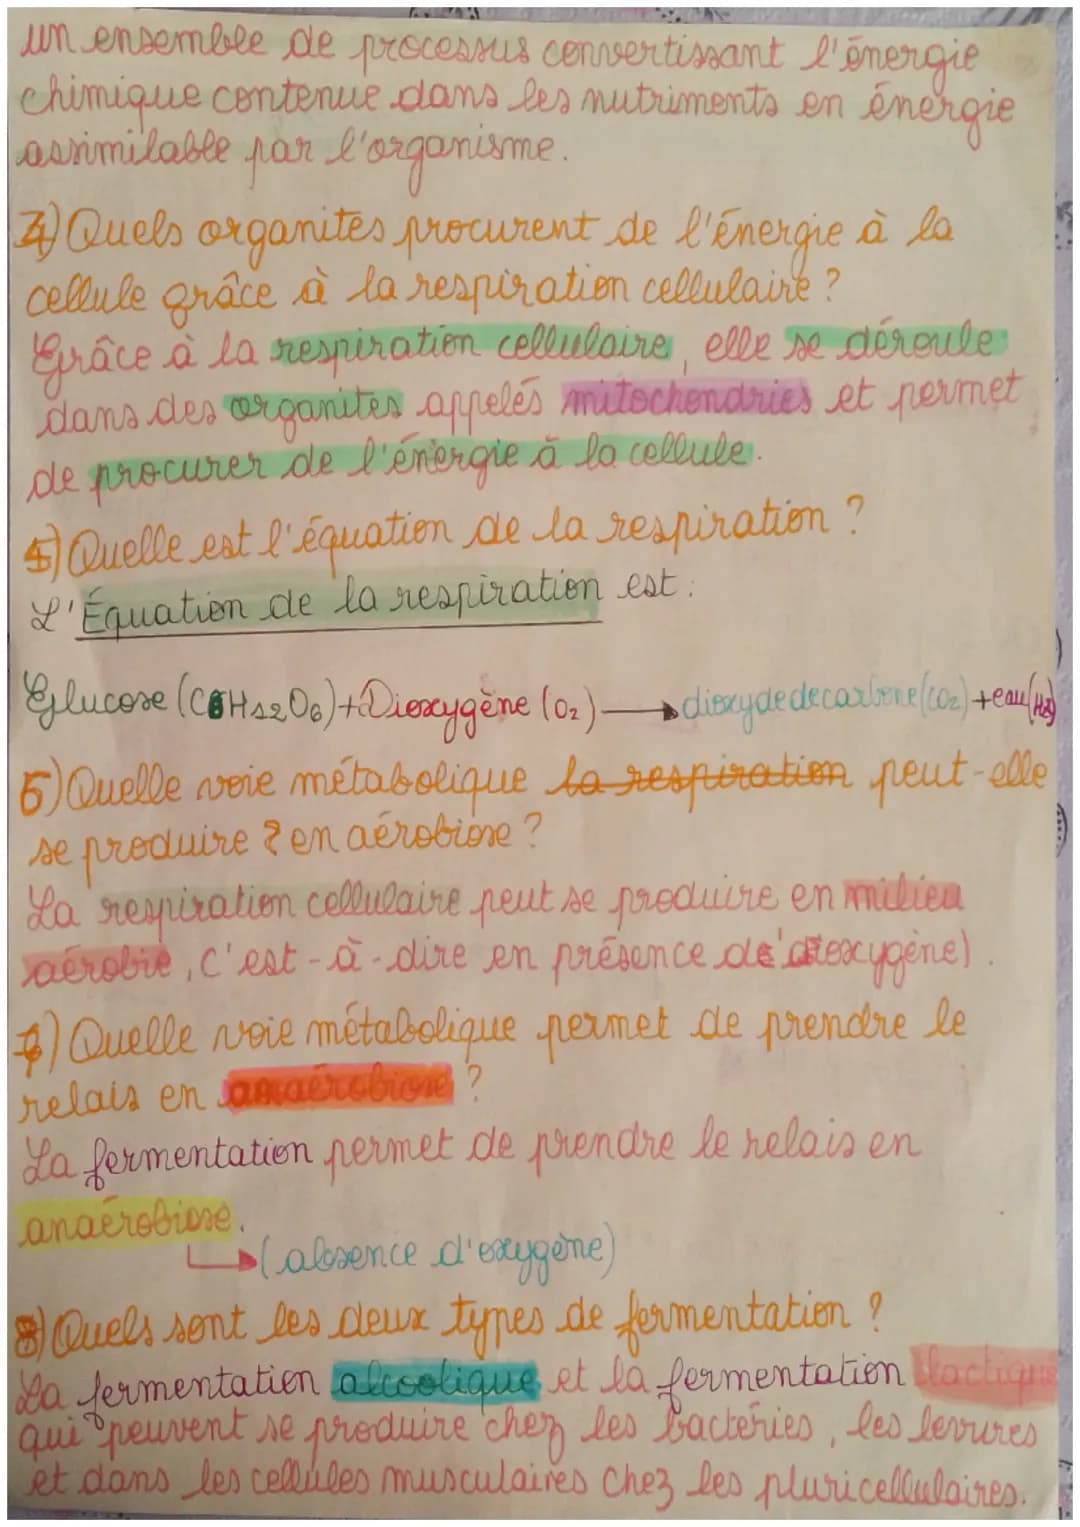 un ensemble de processus convertissant l'énergie
chimique contenue dans les nutriments en énergie
assimilable par l'organisme.
4) Quels organites procurent de l'énergie à la
cellule grâce à la respiration cellulaire ?
Grâce à la respiration cellulaire, elle se déroule
dans des organites appelés mitochondries et permet
de procurer de l'énergie à la cellule.
5) Quelle est l'équation de la respiration ?
L'Équation de la respiration est :
Glucose (C6H12O6) + Dioxygène (O2) → dioxyde de carbone (CO2) + eau (H2O)
6) Quelle voie métabolique la respiration peut-elle
se produire ? en aérobiose ?
La respiration cellulaire peut se produire en milieu
aérobie, c'est-à-dire en présence de dioxygène).
7) Quelle voie métabolique permet de prendre le
relais en anaérobiose ?
La fermentation permet de prendre le relais en
anaérobiose.
(absence d'oxygène)
8) Quels sont les deux types de fermentation ?
La fermentation alcoolique et la fermentation lactique
qui peuvent se produire chez les bactéries, les levures
et dans les cellules musculaires chez les pluricellulaires.